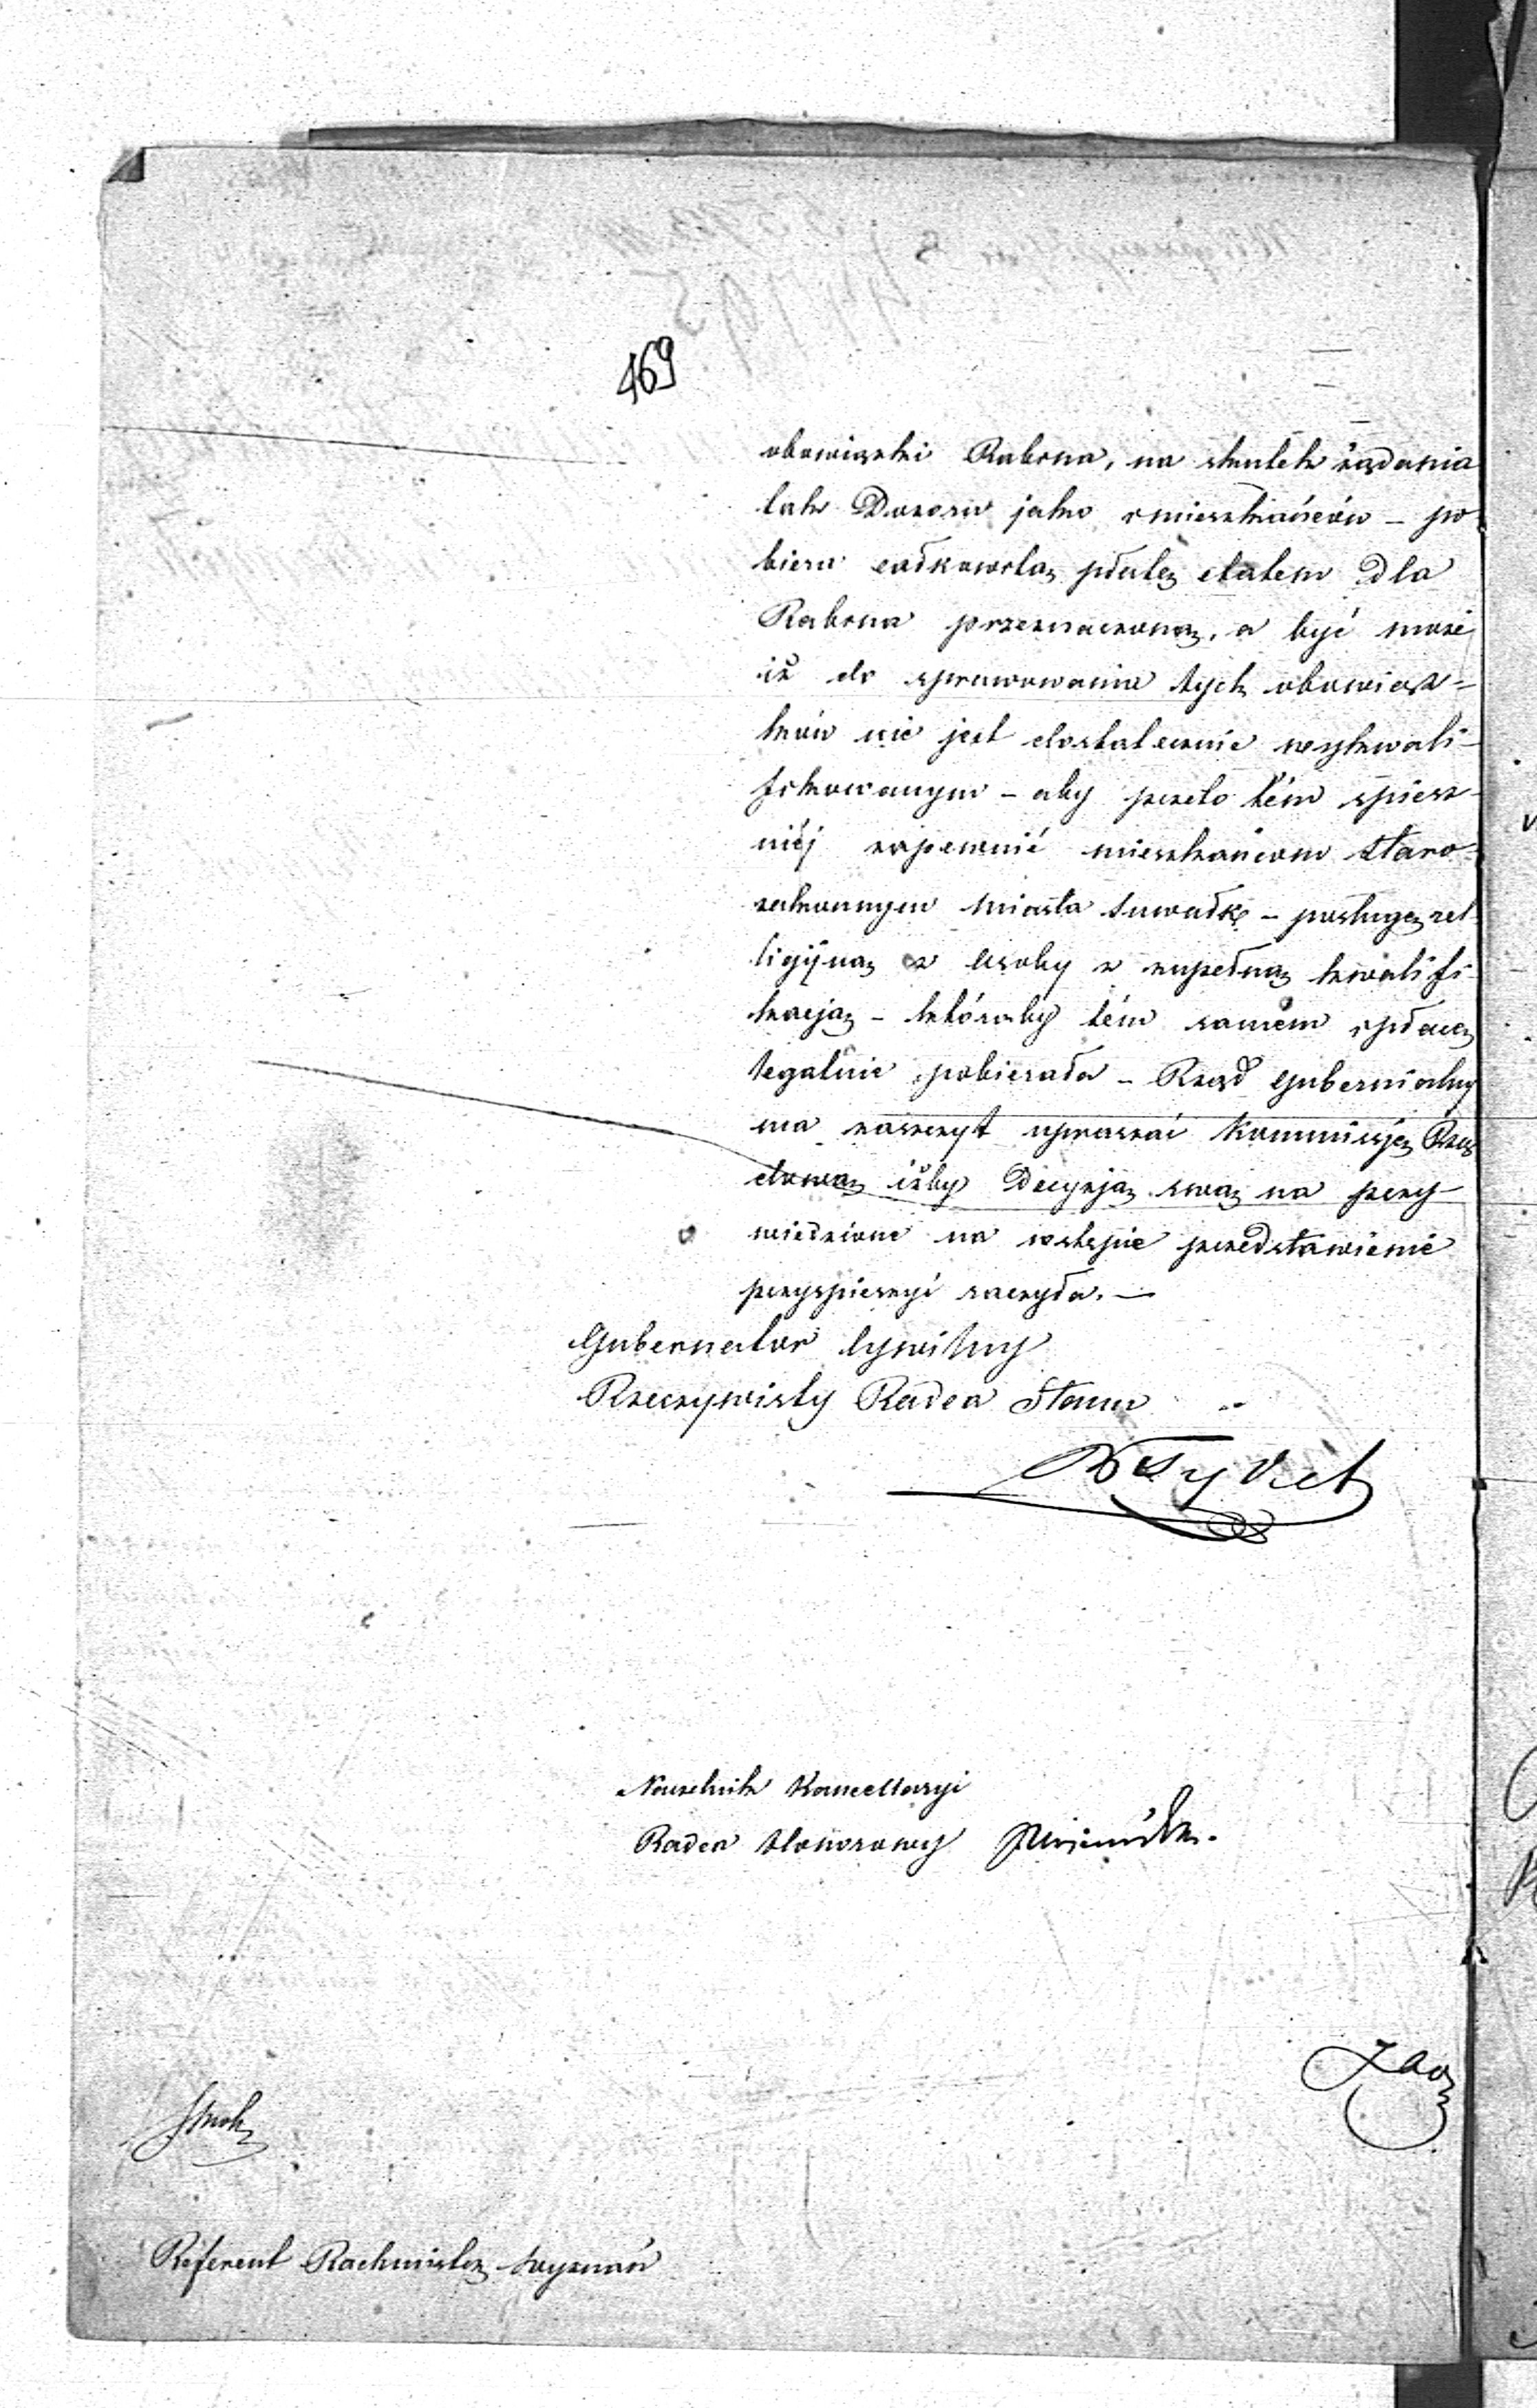 469
obowiązki Rabina, na skutek żądania
tak Dozoru jako i mieszkańców – po
biera całkowitą płacę etatem dla
Rabina przeznaczoną, a być może
iż do sprawowania tych obowiąz=
ków nie jest dostatecznie wykwali-
fikowanym – aby przeto tém spiesz-
niéj zapewnić mieszkańcom staro-
zakonnym miasta Suwałk – posługę rel-
ligijną z osoby z zupełną kwalifi-
kacją – któraby tém samém i płacę
legalnie pobierała – Rząd Gubernialny
ma zaszczyt upraszać Kommissję Rzą
dową iżby Decyzją swą na przy-
wiedzione na wstępie przedstawienie
przyspieszyć raczyła. –
Gubernator Cywilny
Rzeczywisty Radca Stanu
Naczelnik Kancellaryi
Radca Honorowy
Referent Rachmistrz Wyznań